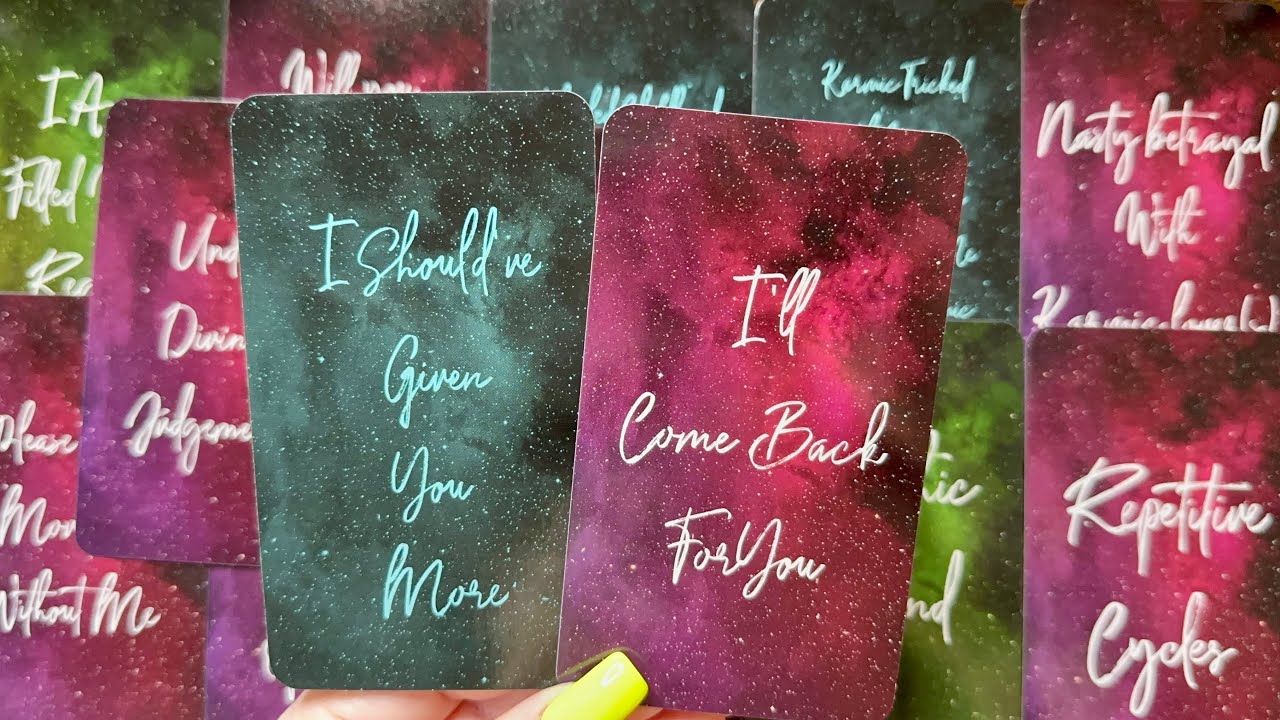 I A
Filled
Will
Karmic Tricked
Nasty betrayal
With
Karmic
I Should've
Given
You
More
I'll
Come Back
For You
Please
Without Me
Repetitive
Cycles